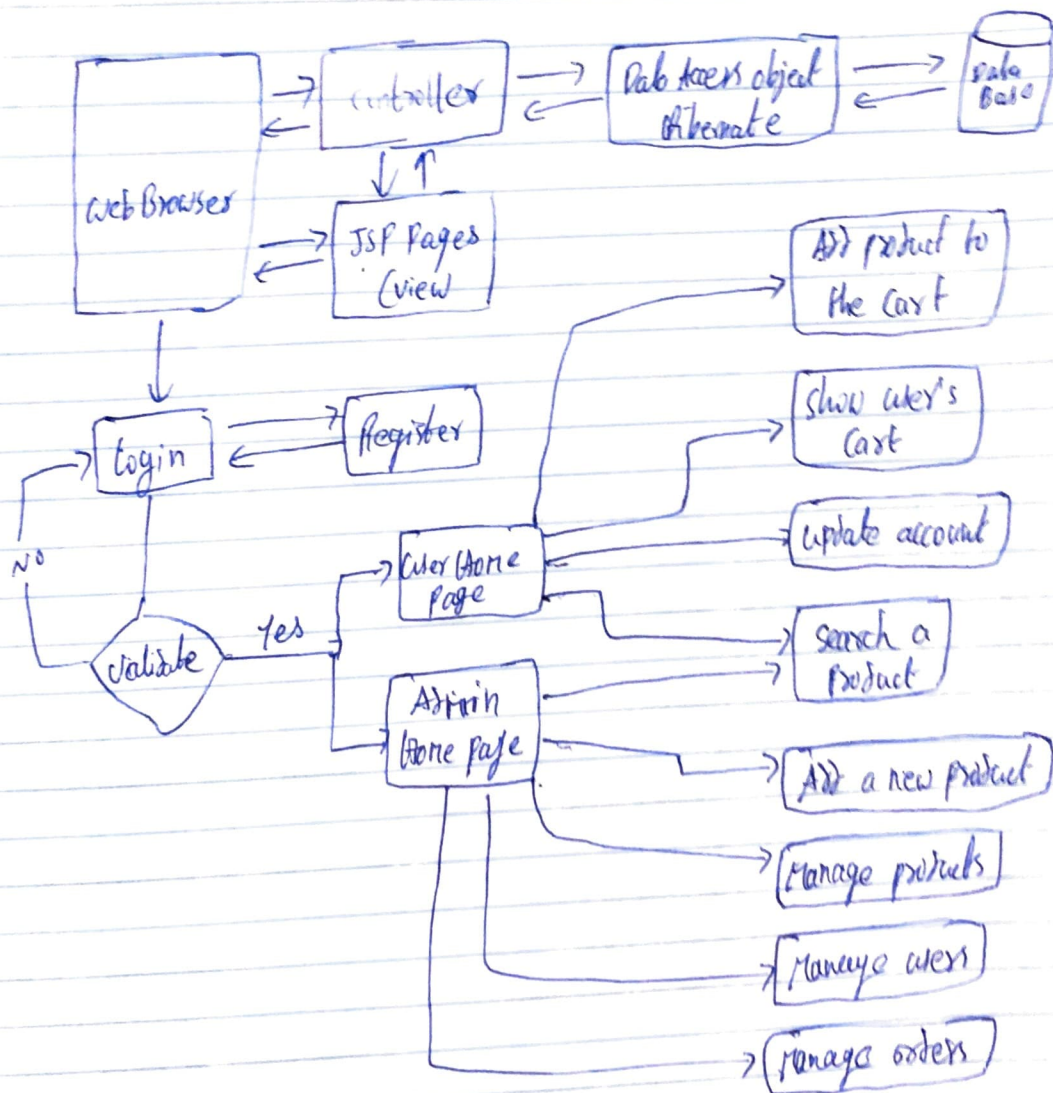 Controller
Data Access object
Hibernate
Data
Base
Web Browser
JSP Pages
(view
Add product to
the cart
Show user's
Cart
Login
Register
update account
NO
User Home
page
Validate
Yes
Search a
product
Admin
Home page
Add a new product
Manage products
Manage users
Manage orders